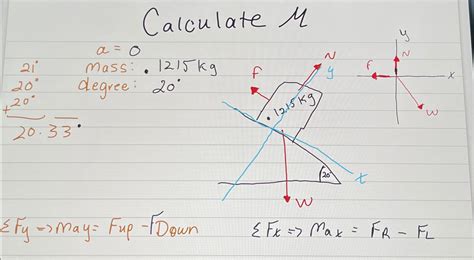 Calculate M
a = 0
mass: .1215kg
degree: 20°
21°
20°
+20°
20.33°
F
N
y
.1215kg
20°
x
W
y
N
F
x
W
ΣFy => may = Fup - FDown
ΣFx => Max = FR - FL